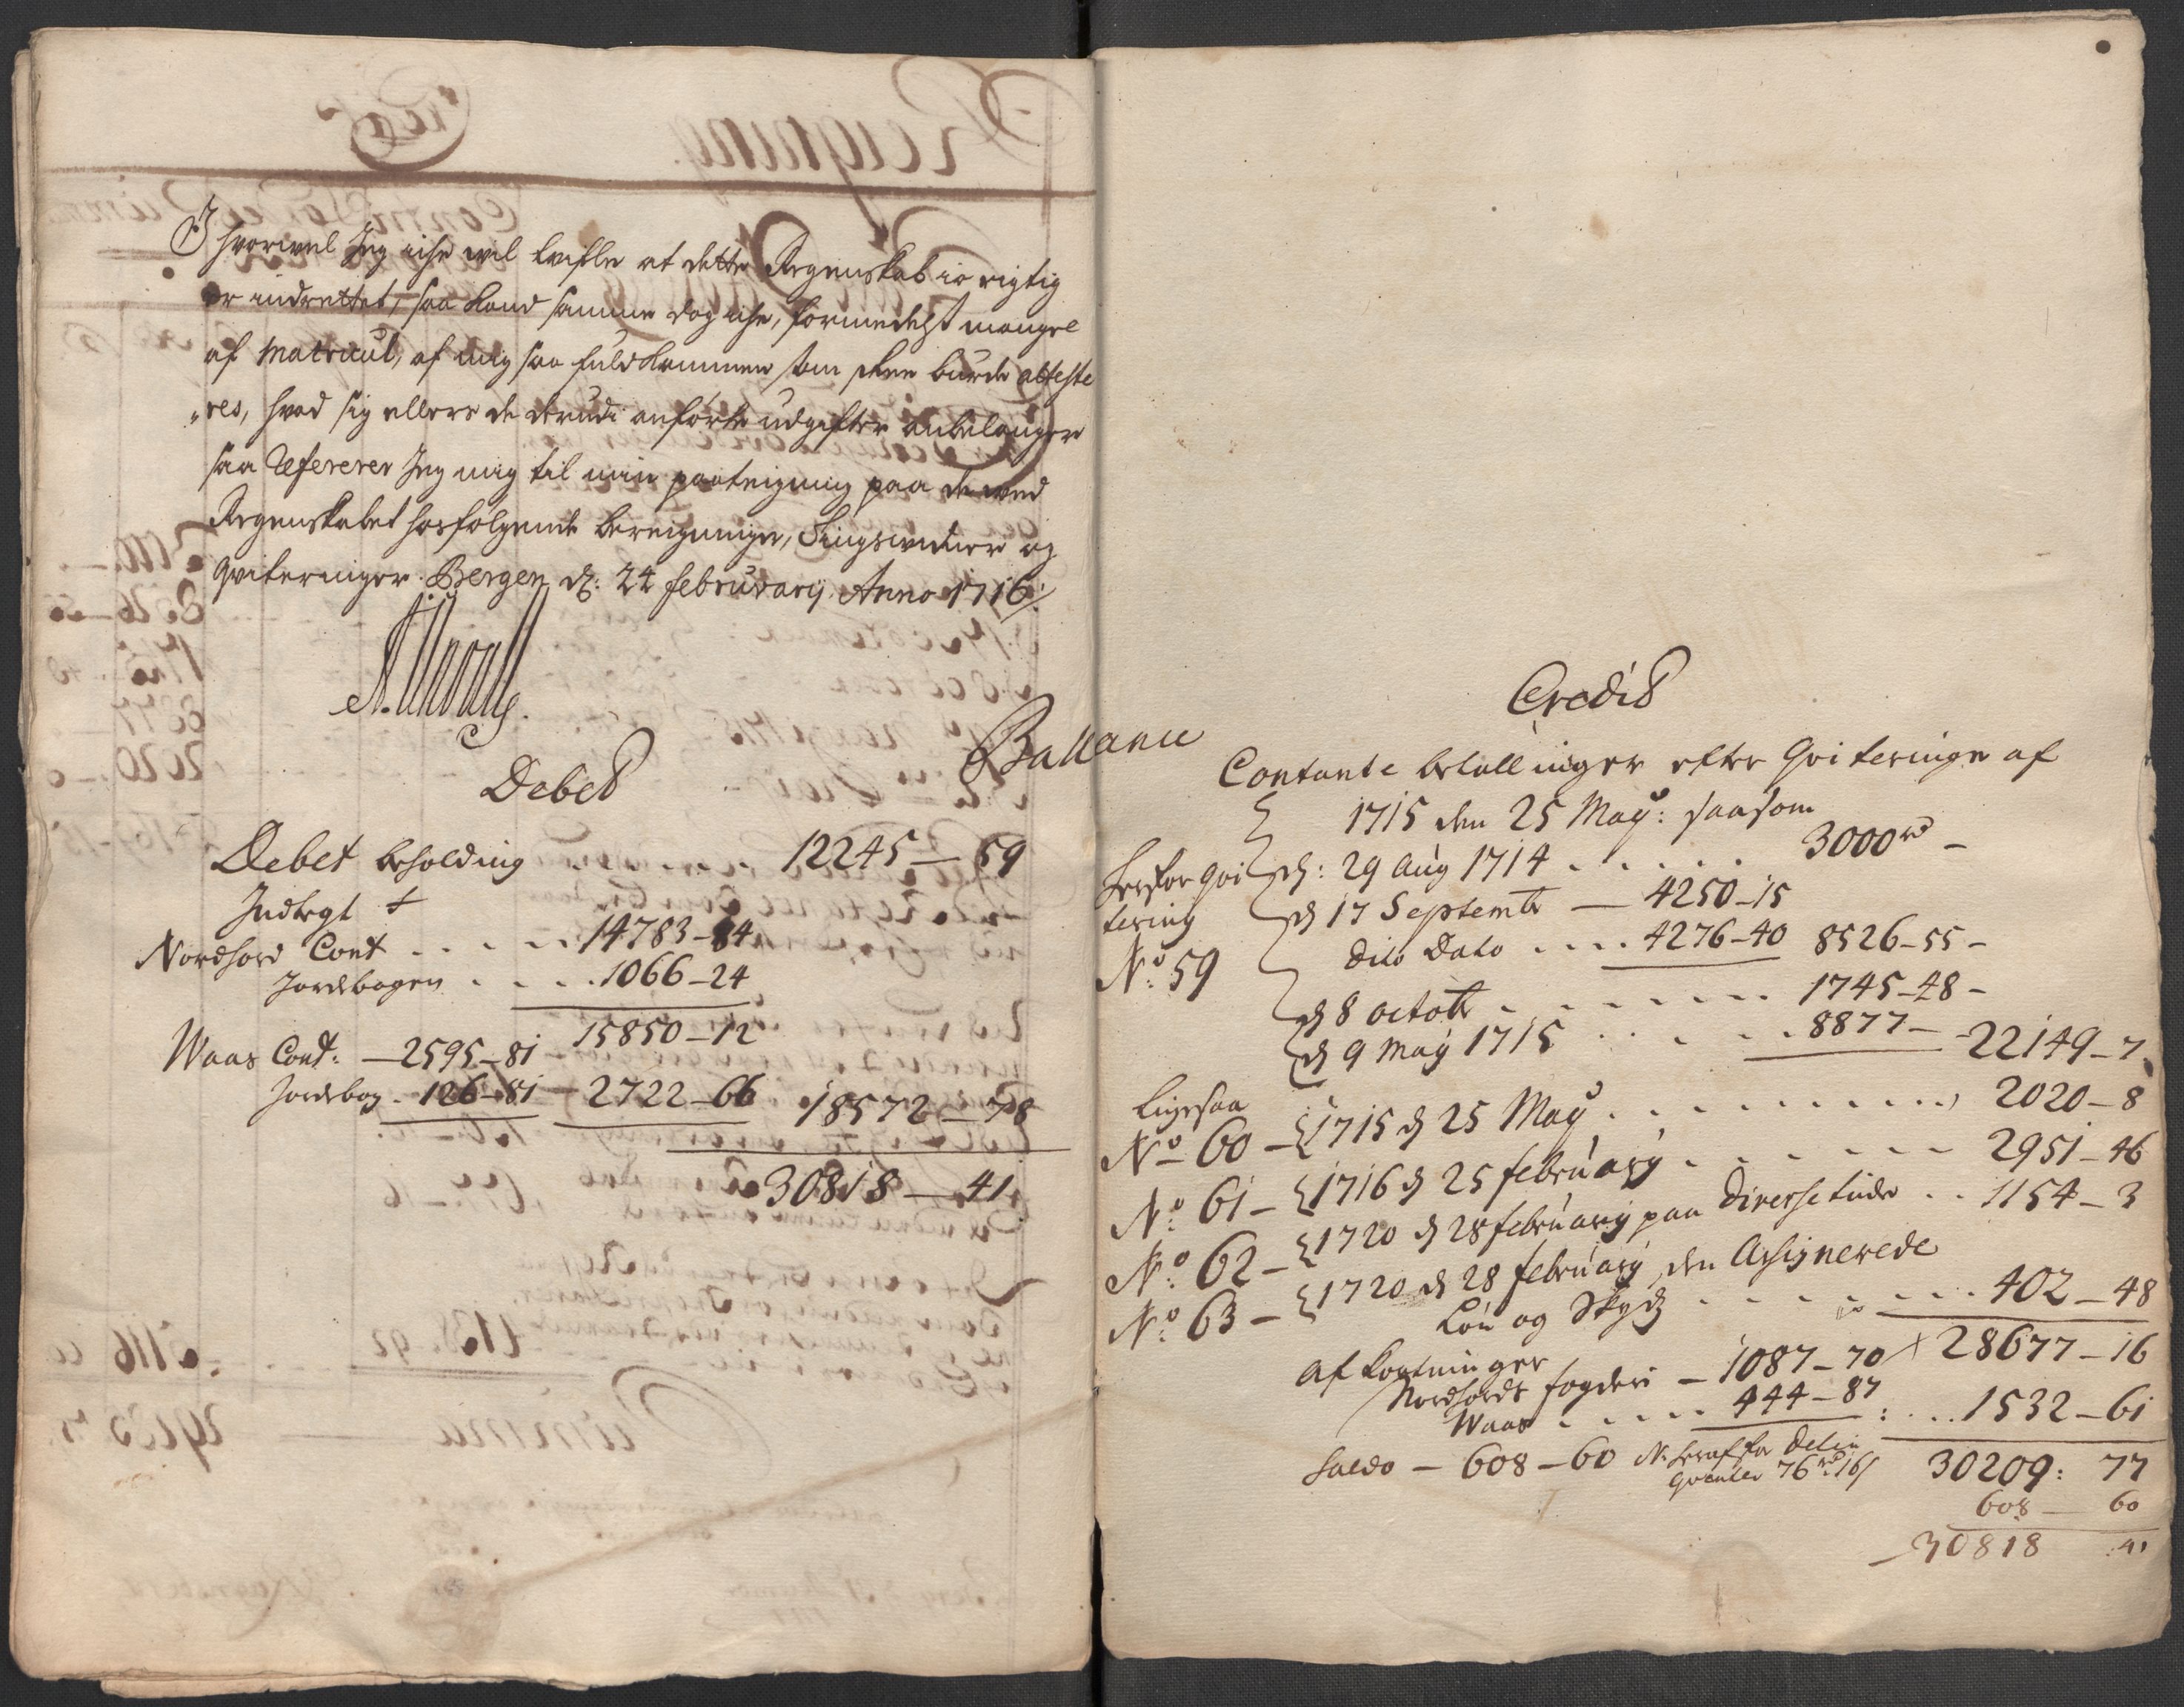 Ihvorvel Jeg iche vil tvifle at dette Regenskab io rigtig
er indrettet, saa kand samme dog iche, formedelst mangel
af Matricul, af mig saa fuldkommen som skee burde atteste
"res, hvad sig ellers de derudi anførte udgifter anbelanger
saa Refererer Jeg mig til min paateigning paa de ved
Regenskabet hosfølgende bereigninger, Tingsvidner og
Qviteringer. Bergen d: 24 februarij Anno 1716
Ballance
Debet
Debet beholding 12245 — 59
Indtegt
Nordfiord Cont . . . . 14783 – 84
Jordebogen . . . . 1066 – 24
15850 – 12
Waas Cont: — 2595 – 81
Jordebog . 126 – 81 — 2722 – 66 18572 — 78
30818 — 41
Credit
Contante betallinger efter Qviteringe af
1715 den 25 Maÿ: saasom
Herfor Qvi
tering
No: 59
d: 29 Aug 1714 . . . . . . 3000 rd –
d 17 Septembr — 4250 – 15
dito Dato . . . . 4276 – 40 8526 – 55 –
d 8 octobr . . . . . . . 1745 – 48 –
d 9 Maÿ 1715 . . . . . 8877 – 22149 – 7
Ligesaa
No 60 – 1715 d 25 Maÿ . . . . . . . . . . 2020 – 8
No: 61 – 1716 d 25 februarÿ . . . . . . . 2951 – 46
No: 62 – 1720 d 28 februarij paa Diverse tider . . 1154 – 3
No: 63 – 1720 d 28 februarÿ den Assignerede
Løn og Skyds . . . . . . . . 402 – 48
28677 – 16
Afkortninger
Nordfiords fogderi – 1087 – 70
Waas . . . . . 444 – 87 : . . . 1532 – 61
Saldo – 608 – 60
30209: 77
608 — 60
30818 41